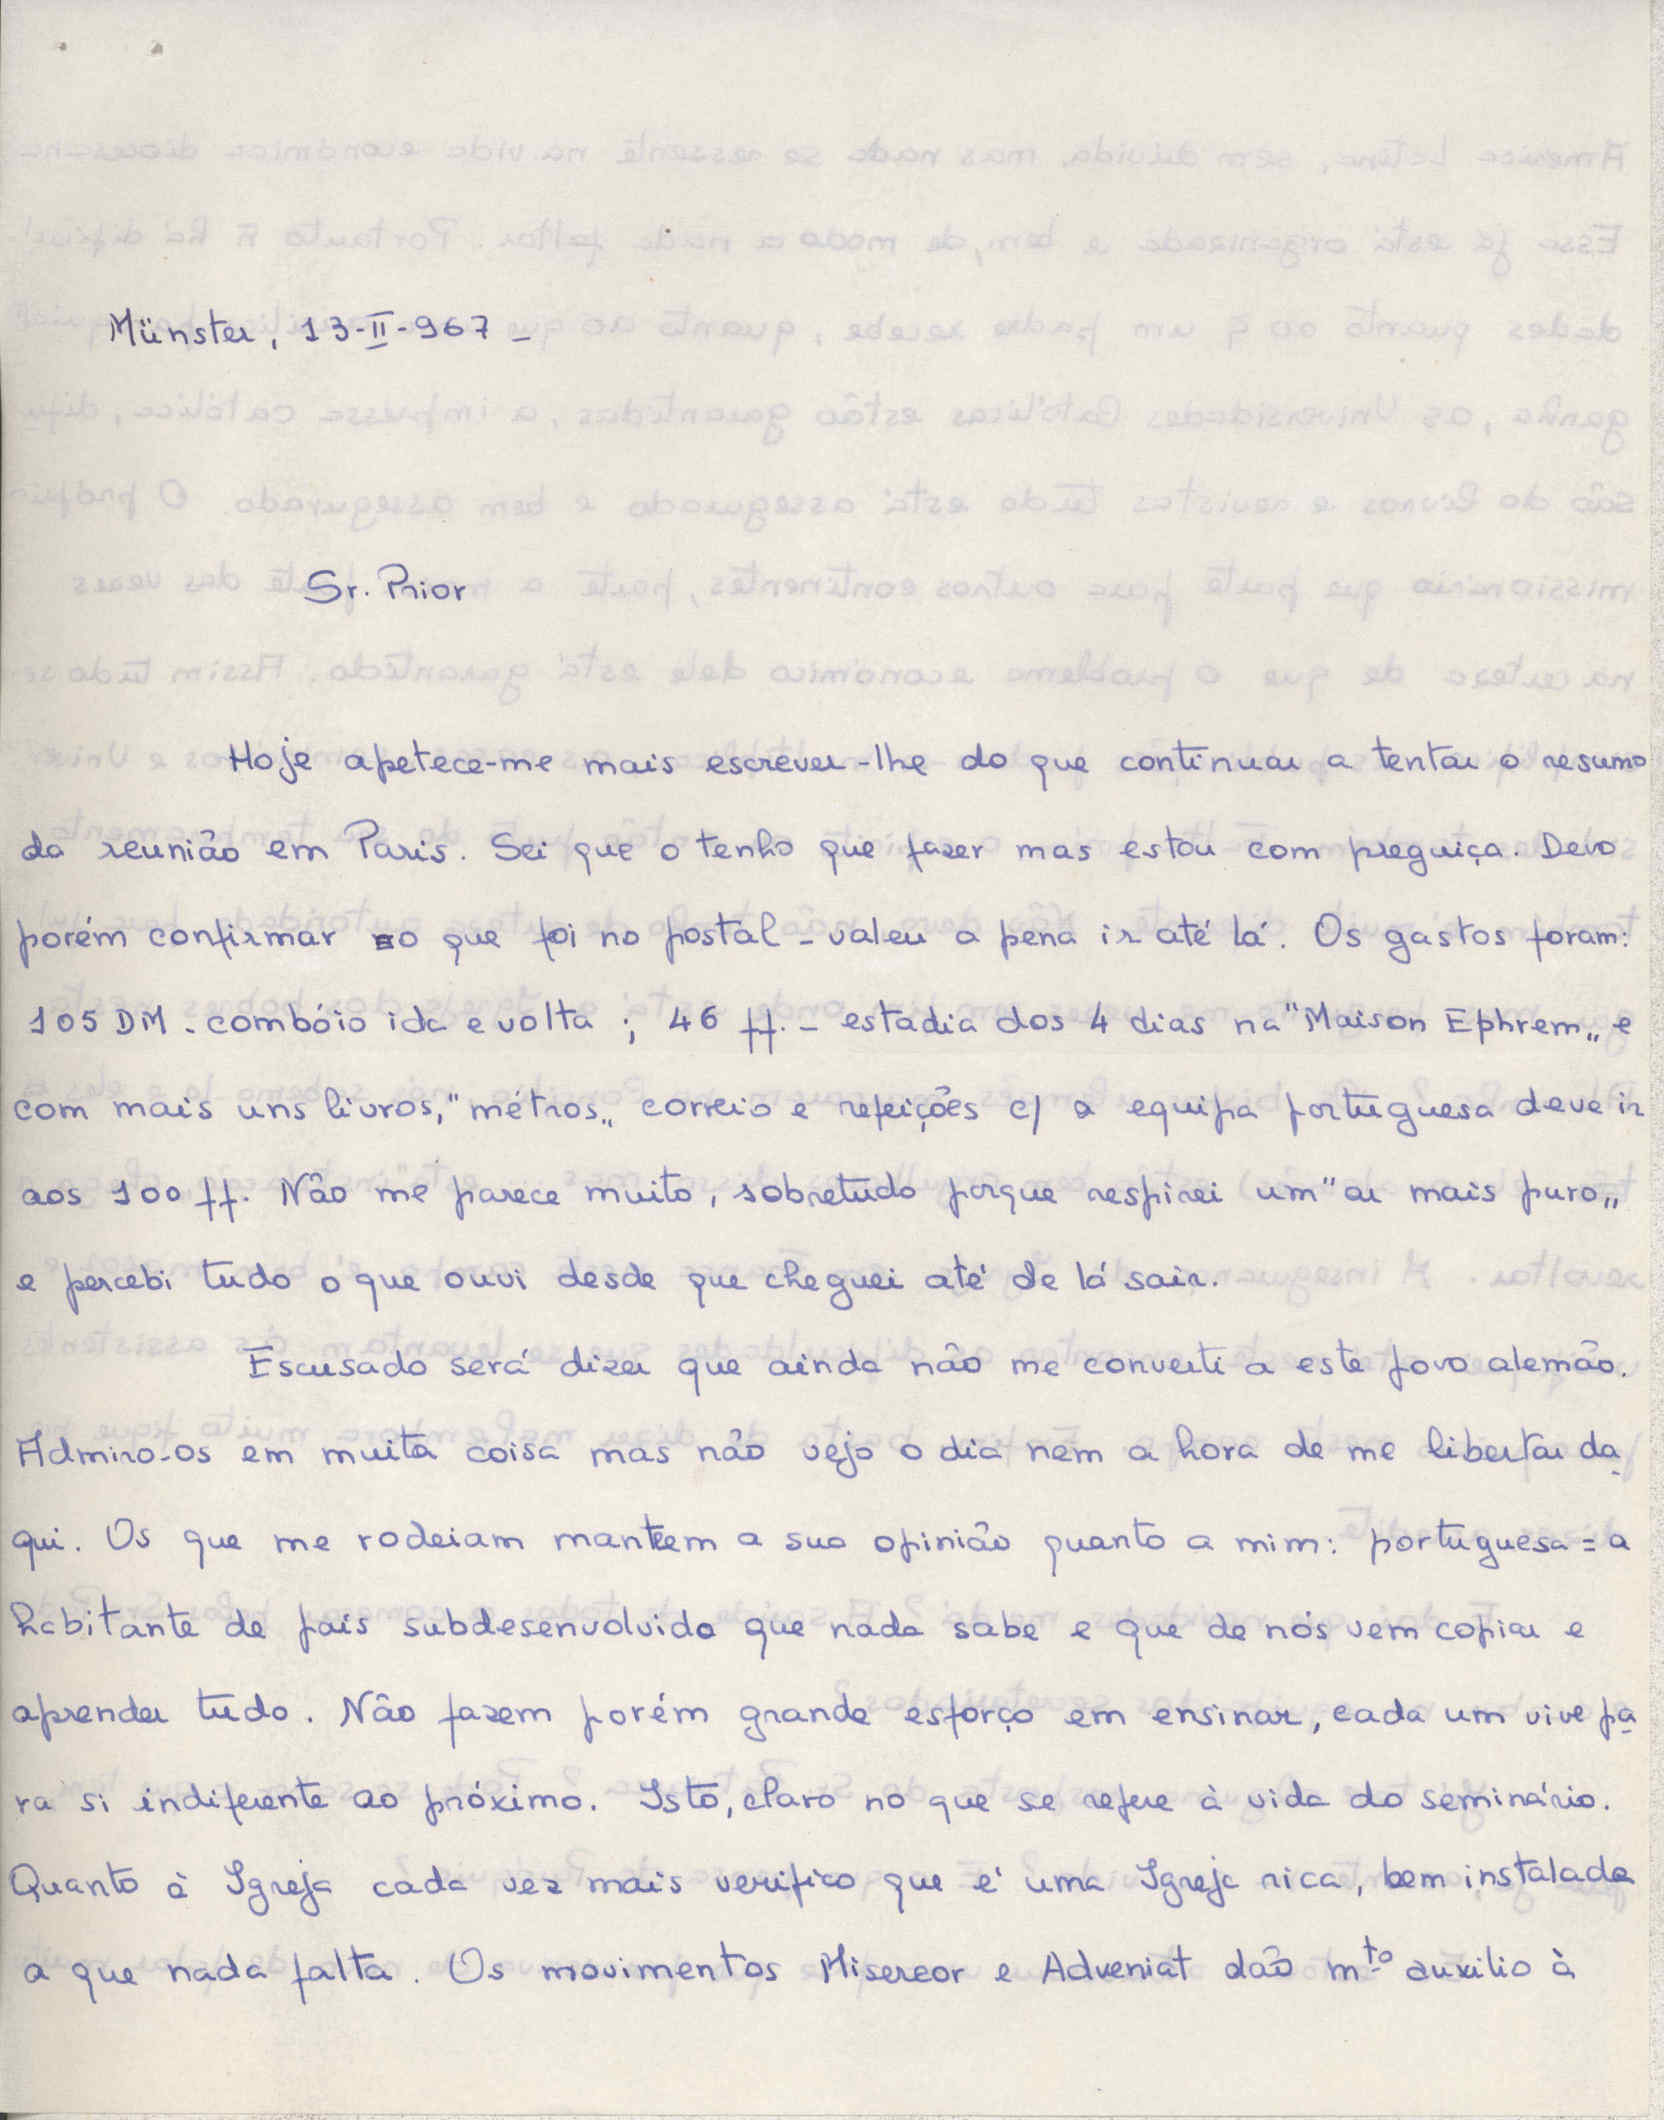 Münster, 13-II-967 -
Sr. Prior
Hoje apetece-me mais escrever-lhe do que continuar a tentar o resumo
da reunião em Paris. Sei que o tenho que fazer mas estou com preguiça. Devo
porém confirmar o que foi no postal - valeu a pena ir até lá. Os gastos foram:
105 DM - combóio ida e volta ; 46 ff. - estadia dos 4 dias na "Maison Ephrem" e
com mais uns livros, "métros" correio e refeições c/ a equipa portuguesa deve ir
aos 100 ff. Não me parece muito, sobretudo porque respirei um "ar mais puro"
e percebi tudo o que ouvi desde que cheguei até de lá sair.
Escusado será dizer que ainda não me converti a este povo alemão.
Admiro-os em muita coisa mas não vejo o dia nem a hora de me libertar da
qui. Os que me rodeiam mantem a sua opinião quanto a mim: portuguesa = a
habitante de país subdesenvolvido que nada sabe e que de nós vem copiar e
aprender tudo. Não fazem porém grande esforço em ensinar, cada um vive pa
ra si indiferente ao próximo. Isto, claro no que se refere à vida do seminário.
Quanto à Igreja cada vez mais verifico que é uma Igreja rica, bem instalada
a que nada falta. Os movimentos Misereor e Adveniat dão mto auxilio à